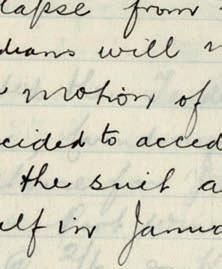 lapse from
dians will
motion of
cided to acced
the suit a
elf in Janua